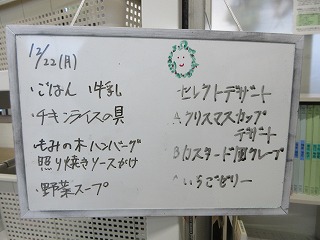 12/22(月)
・ごはん ・牛乳
・チキンライスの具
・もみの木ハンバーグ
照り焼きソースがけ
・野菜スープ
セレクトデザート
A クリスマスカップ
デザート
B カスタード風クレープ
いちごゼリー